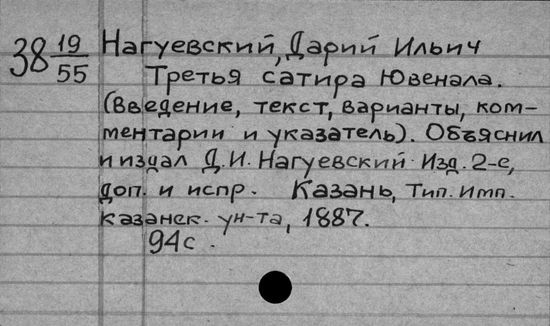 38 19/55 Нагуевский, Дарий Ильич
Третья сатира Ювенала.
(Введение, текст, варианты, ком-
ментарии и указатель). Объяснил
и издал Д.И. Нагуевский. Изд. 2-е,
доп. и испр. Казань, Тип. Имп.
Казанск. ун-та, 1887.
94 с.